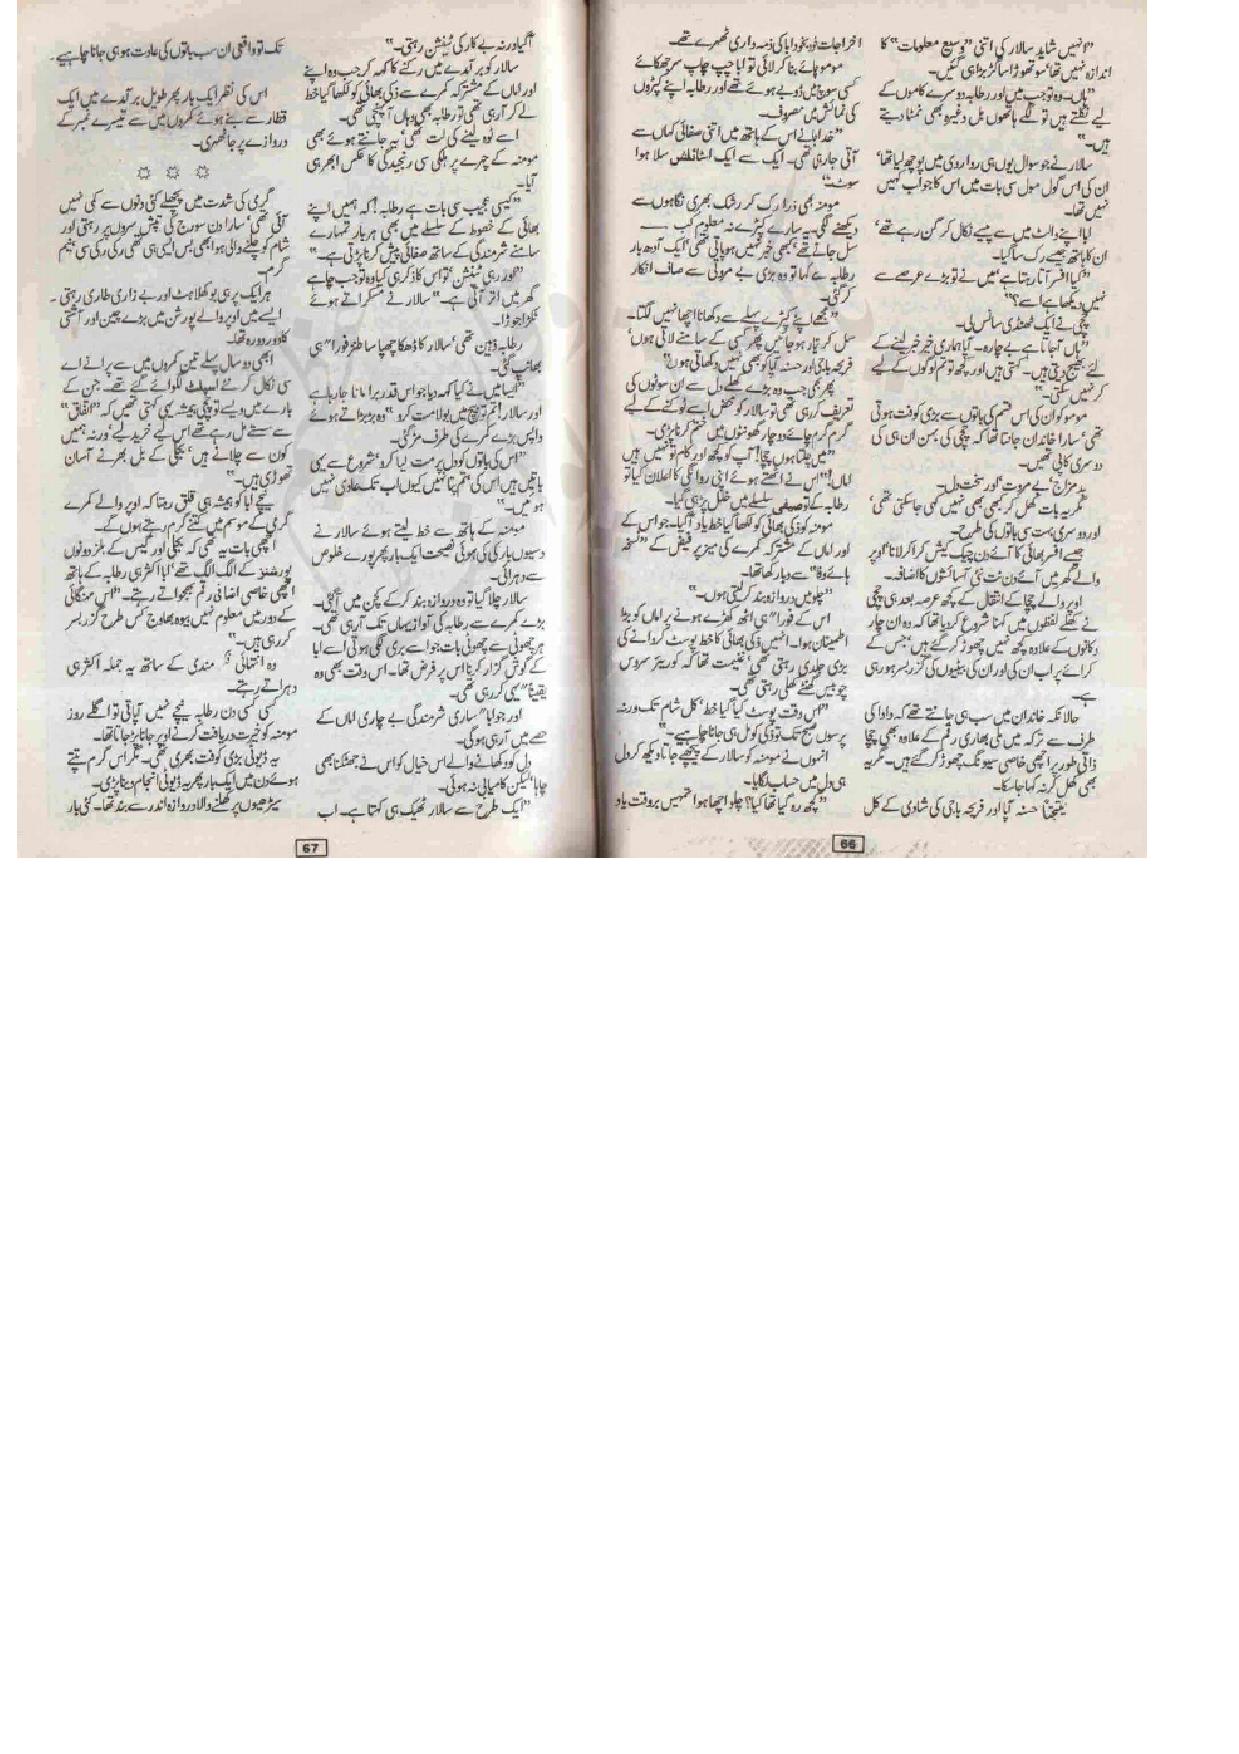 "انہیں شاید سالار کی اتنی "وسیع معلومات" کا
اندازہ نہیں تھا' سو تھوڑا سا گڑبڑا ہی گئیں۔
"ہاں۔ وہ تو جب میں اور رطابہ دوسرے کاموں کے
لیے نکلتے ہیں تو لگے ہاتھوں بل وغیرہ بھی نمٹا دیتے
ہیں۔"
سالار نے جو سوال یوں ہی رواروی میں پوچھ لیا تھا'
ان کی اس گول مول سی بات میں اس کا جواب کہیں
نہیں تھا۔
ابا اپنے والٹ میں سے پیسے نکال کر گن رہے تھے'
ان کا ہاتھ جیسے رک سا گیا۔
"کیا افسر آتا رہتا ہے' میں نے تو بڑے عرصے سے
نہیں دیکھا ہے اسے؟"
چچی نے ایک ٹھنڈی سانس لی۔
"ہاں آجاتا ہے بے چارہ۔ آپا ہماری خیر خبر لینے کے
لئے بھیج دیتی ہیں۔ کہتی ہیں اور کچھ تو تم لوگوں کے لیے
کر نہیں سکتی۔"
مومو کو ان کی اس قسم کی باتوں سے بڑی کوفت ہوتی
تھی' سارا خاندان جانتا تھا کہ چچی کی بہن ان ہی کی
دوسری کاپی تھیں۔
بد مزاج' بے مروت' اور سخت دل۔
مگر یہ بات کھل کر کبھی بھی نہیں کہی جا سکتی تھی'
اور دوسری بہت سی باتوں کی طرح۔
جیسے افسر بھائی کا آئے دن چیک کیش کرا کر لانا' اوپر
والے گھر میں آئے دن نت نئی آسائشوں کا اضافہ۔
اوپر والے چچا کے انتقال کے کچھ عرصہ بعد ہی چچی
نے کھلے لفظوں میں کہنا شروع کر دیا تھا کہ وہ ان چار
دکانوں کے علاوہ کچھ نہیں چھوڑ کر گئے ہیں' جس کے
کرائے پر اب ان کی اور ان کی بیٹیوں کی گزر بسر ہو رہی
ہے۔
حالانکہ خاندان میں سب ہی جانتے تھے کہ دادا کی
طرف سے ترکہ میں ملی بھاری رقم کے علاوہ بھی چچا
ذاتی طور پر اچھی خاصی سیونگ چھوڑ کر گئے ہیں۔ مگر یہ
بھی کھل کر نہ کہا جا سکا۔
نتیجتاً حسنہ آپا اور فریحہ باجی کی شادی کے کل
اخراجات خود بخود ابا کی ذمہ داری ٹھہرے تھے۔
مومو چائے بنا کر لائی تو ابا چپ چاپ سر جھکائے
کسی سوچ میں ڈوبے ہوئے تھے اور رطابہ اپنے کپڑوں
کی نمائش میں مصروف۔
"خدا جانے اس کے ہاتھ میں اتنی صفائی کہاں سے
آتی جا رہی تھی۔ ایک سے ایک اسٹائلش سلا ہوا
سوٹ"
مومنہ بھی ذرا رک کر رشک بھری نگاہوں سے
دیکھنے لگی۔ یہ سارے کپڑے نہ معلوم کب
سل جاتے تھے' کبھی خبر نہیں ہو پاتی تھی' ایک آدھ بار
رطابہ سے کہا تو وہ بڑی بے مروتی سے صاف انکار
کر گئی۔
"مجھے اپنے کپڑے پہلے سے دکھانا اچھا نہیں لگتا۔
سل کر تیار ہو جائیں پھر کسی کے سامنے لاتی ہوں'
فریحہ باجی اور حسنہ آپا کو بھی نہیں دکھاتی ہوں"
پھر بھی جب وہ بڑے کھلے دل سے ان سوٹوں کی
تعریف کر رہی تھی تو سالار کو محض اسے ٹوکنے کے لیے
گرم گرم چائے دو چار گھونٹوں میں ختم کرنا پڑی۔
"میں چلتا ہوں چچا! آپ کو کچھ اور کام تو نہیں ہیں
اماں!" اس نے اٹھتے ہوئے اپنی روانگی کا اعلان کیا تو
رطابہ کے توصیفی سلسلے میں خلل پڑ ہی گیا۔
مومنہ کو ذکی بھائی کو لکھا گیا خط یاد آ گیا۔ جو اس کے
اور اماں کے مشترکہ کمرے کی میز پر فیض کے "نسخہ
ہائے وفا" سے دبا رکھا تھا۔
"چلو میں دروازہ بند کر لیتی ہوں۔"
اس کے فوراً" ہی اٹھ کھڑے ہونے پر اماں کو بڑا
اطمینان ہوا۔ انہیں ذکی بھائی کا خط پوسٹ کروانے کی
بڑی جلدی رہتی تھی' غنیمت تھا کہ کوریئر سروس
چوبیس گھنٹے کھلی رہتی تھی۔
"اس وقت پوسٹ کیا گیا خط' کل شام تک ورنہ
پرسوں صبح تک تو ذکی کو مل ہی جانا چاہیے۔"
انہوں نے مومنہ کو سالار کے پیچھے جاتا دیکھ کر دل
ہی دل میں حساب لگایا۔
"کچھ رہ گیا تھا کیا؟ چلو اچھا ہوا تمہیں بر وقت یاد
66
آ گیا ورنہ بے کار کی ٹینشن رہتی۔"
سالار کو برآمدے میں رکنے کا کہہ کر جب وہ اپنے
اور اماں کے مشترکہ کمرے سے ذکی بھائی کو لکھا گیا خط
لے کر آ رہی تھی تو رطابہ بھی وہاں آ پہنچی تھی۔
اسے ٹوہ لینے کی لت تھی' یہ جانتے ہوئے بھی
مومنہ کے چہرے پر ہلکی سی رنجیدگی کا عکس ابھر ہی
آیا۔
"کیسی عجیب سی بات ہے رطابہ! کہ ہمیں اپنے
بھائی کے خطوط کے سلسلے میں بھی ہر بار تمہارے
سامنے شرمندگی کے ساتھ صفائی پیش کرنا پڑتی ہے۔"
"اور رہی ٹینشن' تو اس کا ذکر ہی کیا وہ تو جب چاہے
گھر میں اتر آتی ہے۔" سالار نے مسکراتے ہوئے
ٹکڑا جوڑا۔
رطابہ ذہین تھی' سالار کا ڈھکا چھپا سا طنز فوراً" ہی
بھانپ گئی۔
"ایسا میں نے کیا کہہ دیا جو اس قدر برا مانا جا رہا ہے
اور سالار! تم تو بیچ میں بولا مت کرو" وہ بڑبڑاتے ہوئے
واپس بڑے کمرے کی طرف مڑ گئی۔
"اس کی باتوں کو دل پر مت لیا کرو' شروع سے یہی
باتیں ہیں اس کی' تم پتا نہیں کیوں اب تک عادی نہیں
ہوئیں۔"
مومنہ کے ہاتھ سے خط لیتے ہوئے سالار نے
دسیوں بار کی کی ہوئی نصیحت ایک بار پھر پورے خلوص
سے دہرائی۔
سالار چلا گیا تو وہ دروازہ بند کر کے کچن میں آ گئی۔
بڑے کمرے سے رطابہ کی آواز یہاں تک آ رہی تھی۔
ہر چھوٹی سے چھوٹی بات جو اسے بری لگی ہوتی اسے ابا
کے گوش گزار کرنا اس پر فرض تھا۔ اس وقت بھی وہ
یقیناً" یہی کر رہی تھی۔
اور جواباً" ساری شرمندگی بے چاری اماں کے
حصے میں آ رہی ہو گی۔
دل کو دکھانے والے اس خیال کو اس نے جھٹکنا بھی
چاہا' لیکن کامیابی نہ ہوئی۔
"ایک طرح سے سالار ٹھیک ہی کہتا ہے۔ اب
تک تو واقعی ان سب باتوں کی عادت ہو ہی جانا چاہیے۔
اس کی نظر ایک بار پھر طویل برآمدے میں ایک
قطار سے بنے ہوئے کمروں میں سے تیسرے نمبر کے
دروازے پر جا ٹھہری۔
✡ ✡ ✡
گرمی کی شدت میں پچھلے کئی دنوں سے کمی نہیں
آئی تھی' سارا دن سورج کی تپش سروں پر رہتی اور
شام کو چلنے والی ہوا بھی بس ایسی ہی تھی' رکی رکی سی' نیم
گرم۔
ہر ایک پر ہی بوکھلاہٹ اور بے زاری طاری رہتی۔
ایسے میں اوپر والے پورشن میں بڑے چین اور آشتی
کا دور دورہ تھا۔
ابھی دو سال پہلے تین کمروں میں سے پرانے اے
سی نکال کر نئے اسپلٹ لگوائے گئے تھے۔ جن کے
بارے میں ویسے تو چچی ہمیشہ یہی کہتی تھیں کہ "اتفاق"
سے سستے مل رہے تھے اس لیے خرید لیے' ورنہ ہمیں
کون سے چلانے ہیں' بجلی کے بل بھرنے آسان
تھوڑی ہیں۔"
نیچے ابا کو ہمیشہ ہی قلق رہتا کہ اوپر والے کمرے
گرمی کے موسم میں کتنے گرم رہتے ہوں گے۔
اچھی بات یہ تھی کہ بجلی اور گیس کے بلز دونوں
پورشنز کے الگ الگ تھے' ابا اکثر ہی رطابہ کے ہاتھ
اچھی خاصی اضافی رقم بھجواتے رہتے۔ "اس مہنگائی
کے دور میں معلوم نہیں بیوہ بھاوج کس طرح گزر بسر
کر رہی ہیں۔"
وہ انتہائی مندی کے ساتھ یہ جملہ اکثر ہی
دہراتے رہتے۔
کسی کسی دن رطابہ نیچے نہیں آ پاتی تو اگلے روز
مومنہ کو خیریت دریافت کرنے اوپر جانا پڑ جاتا تھا۔
یہ ڈیوٹی بڑی کوفت بھری تھی۔ مگر اس گرم تپتے
ہوئے دن میں ایک بار پھر یہ ڈیوٹی انجام دینا پڑی۔
سیڑھیوں پر کھلنے والا دروازہ اندر سے بند تھا۔ کئی بار
67